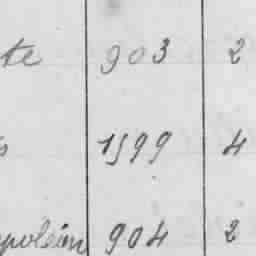 te 903 2
s 1599 4
apoléon 904 2